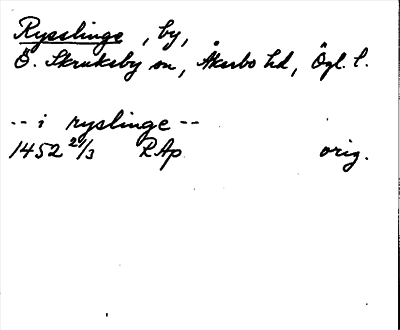 Rysslinge, by,
Ö. Skruksby sn, Åkerbo hd, Ögl. l.
-- i ryslinge --
1452 21/3 RAp orig.